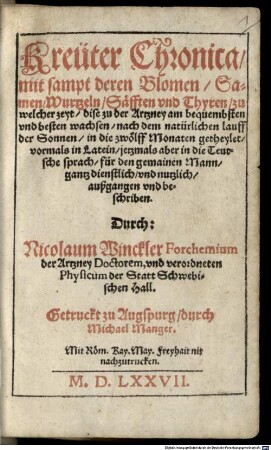 1
Kreüter Chronica/
mit sampt deren Blomen/ Sa-
men/Wurtzeln/ Säfften vnd Thyren/zu
welcher zeyt/ dise zu der Artzney am bequembsten
vnd besten wachsen/ nach dem natürlichen lauff
der Sonnen/ in die zwölff Monaten getheylet/
vormals in Latein/jetzmals aber in die Teut-
sche sprach/ für den gemainen Mann/
gantz dienstlich/vnd nutzlich/
außgangen vnd be-
schriben.
Durch:
Nicolaum Winckler Forchemium
der Artzney Doctorem, vnd verordneten
Physicum der Statt Schwebi-
schen Hall.
Getruckt zu Augspurg/durch
Michael Manger.
Mit Röm. Kay. May. Freyhait nit
nachzutrucken.
M. D. LXXVII.